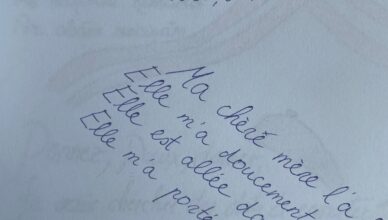 Ma chère mère l'a
Elle m'a doucement
Elle est allée da
Elle m'a porté